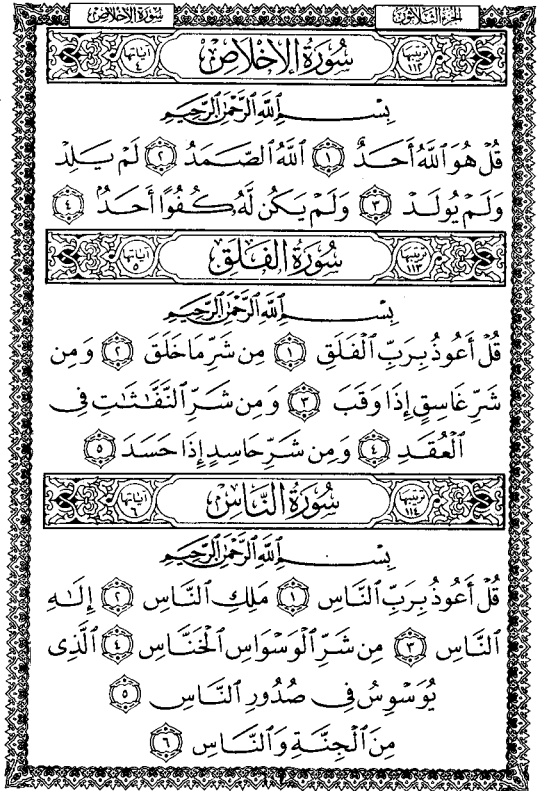 الجزء الثلاثون سورة الإخلاص
ترتيبها ١١٢ سُورَةُ الإِخْلَاصِ آياتها ٤
بِسْمِ ٱللَّهِ ٱلرَّحْمَٰنِ ٱلرَّحِيمِ
قُلْ هُوَ ٱللَّهُ أَحَدٌ ١ ٱللَّهُ ٱلصَّمَدُ ٢ لَمْ يَلِدْ
وَلَمْ يُولَدْ ٣ وَلَمْ يَكُن لَّهُۥ كُفُوًا أَحَدٌۢ ٤
ترتيبها ١١٣ سُورَةُ الْفَلَقِ آياتها ٥
بِسْمِ ٱللَّهِ ٱلرَّحْمَٰنِ ٱلرَّحِيمِ
قُلْ أَعُوذُ بِرَبِّ ٱلْفَلَقِ ١ مِن شَرِّ مَا خَلَقَ ٢ وَمِن
شَرِّ غَاسِقٍ إِذَا وَقَبَ ٣ وَمِن شَرِّ ٱلنَّفَّٰثَٰتِ فِى
ٱلْعُقَدِ ٤ وَمِن شَرِّ حَاسِدٍ إِذَا حَسَدَ ٥
ترتيبها ١١٤ سُورَةُ النَّاسِ آياتها ٦
بِسْمِ ٱللَّهِ ٱلرَّحْمَٰنِ ٱلرَّحِيمِ
قُلْ أَعُوذُ بِرَبِّ ٱلنَّاسِ ١ مَلِكِ ٱلنَّاسِ ٢ إِلَٰهِ
ٱلنَّاسِ ٣ مِن شَرِّ ٱلْوَسْوَاسِ ٱلْخَنَّاسِ ٤ ٱلَّذِى
يُوَسْوِسُ فِى صُدُورِ ٱلنَّاسِ ٥
مِنَ ٱلْجِنَّةِ وَٱلنَّاسِ ٦